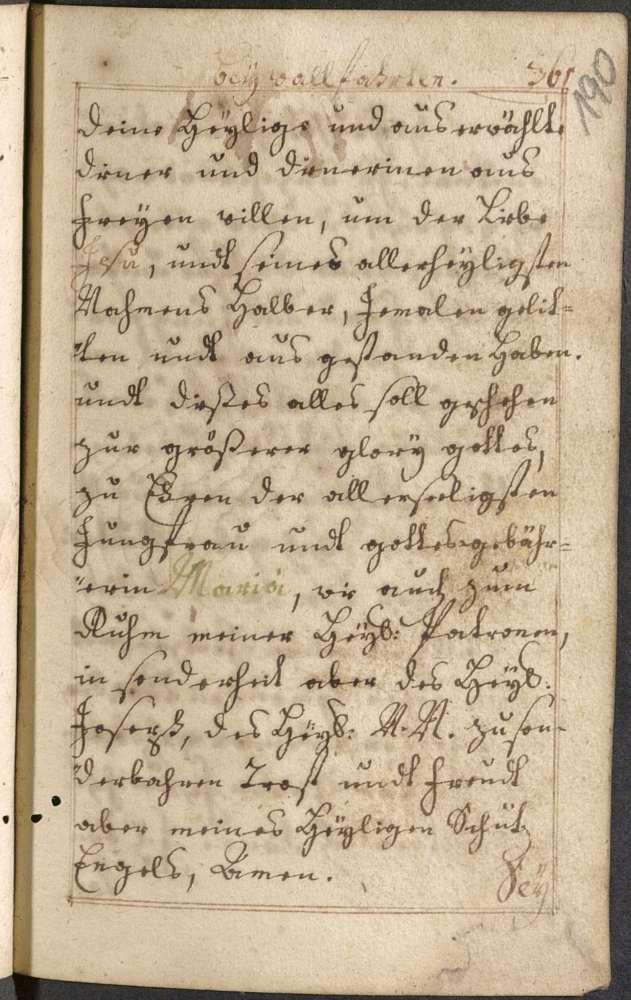 beÿ wallfahrten. 361
190
deine Heÿlige und auserwöhlte
diner und dienerinen aus
freyen willen, um der Liebe
Jesu, undt seines allerheÿligsten
Nahmens Halber, Jemalen gelit=
"ten undt aus gestanden haben.
undt dißes alles soll geschehen
zur größerer glory gottes,
zu Ehren der allerseeligsten
Jungfrau undt gottesgebähr=
"erin Mariä, wie auch zum
Ruhm meiner Heÿl: Patronen,
in sonderheit aber des Heÿl:
Josephs, des Heÿl: N. N. zu son=
"derbahren Trost undt freudt
aber meines Heÿligen Schutz
Engels, Amen.
Beÿ